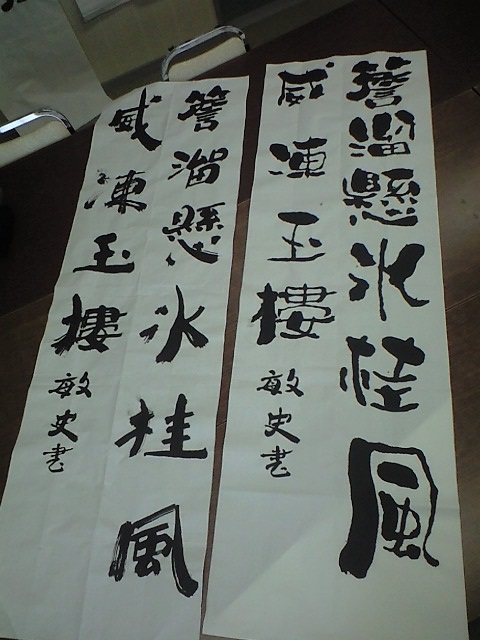 簷溜懸冰桂風
威凍玉樓
敏史書
簷溜懸冰桂風
威凍玉樓
敏史書